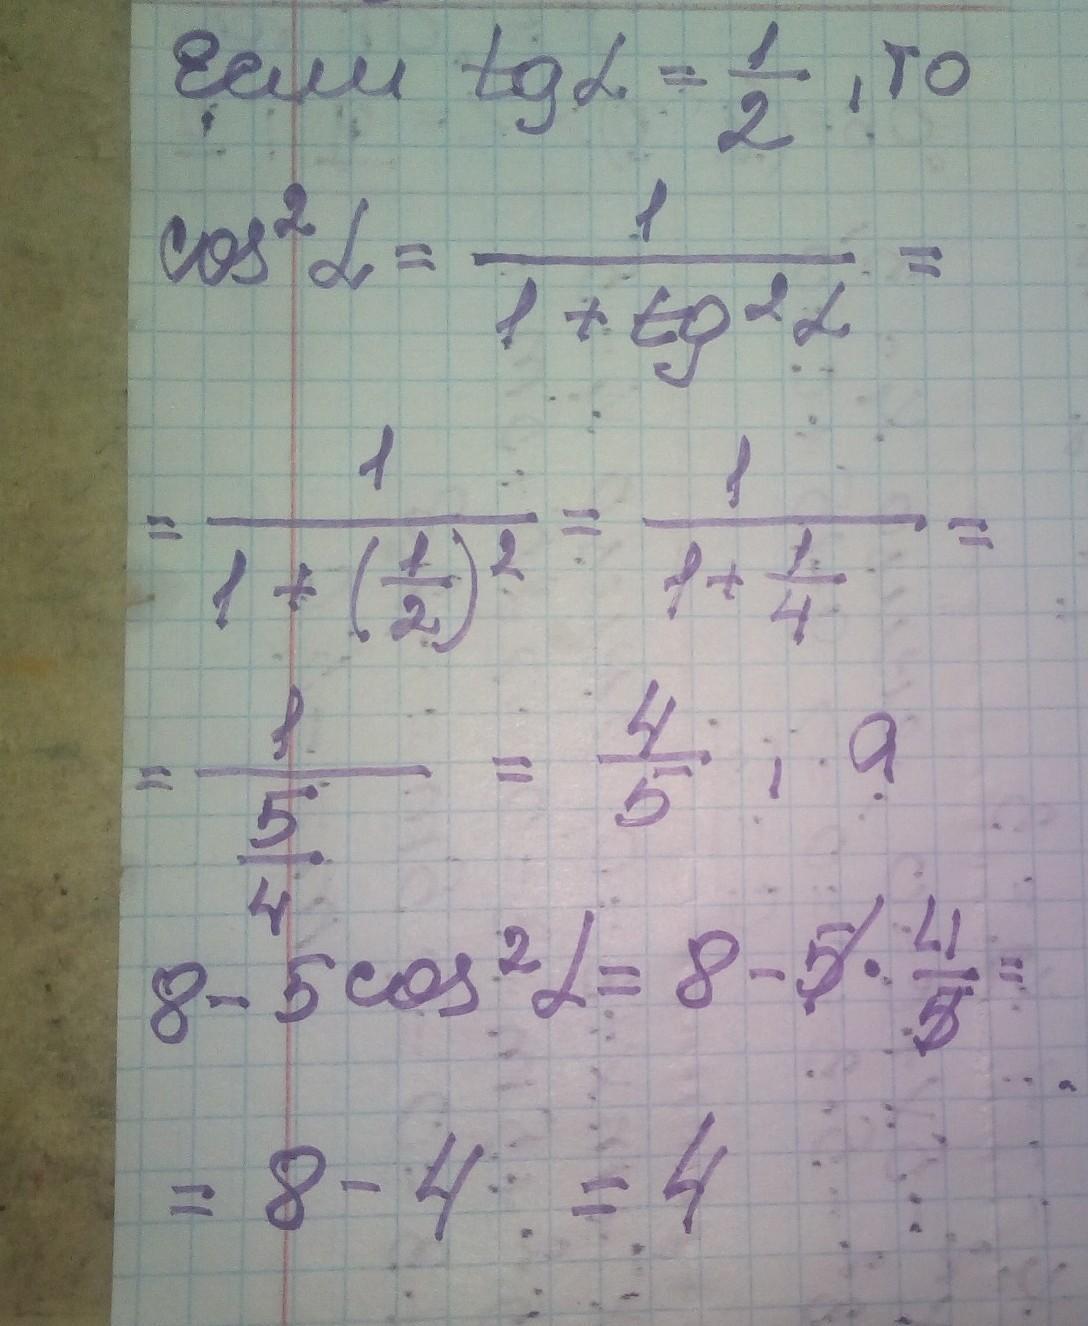 Если tg α = 1/2, то
cos² α = 1/(1 + tg² α) =
= 1/(1 + (1/2)²) = 1/(1 + 1/4) =
= 1/(5/4) = 4/5, а
8 - 5 cos² α = 8 - 5 · 4/5 =
= 8 - 4 = 4